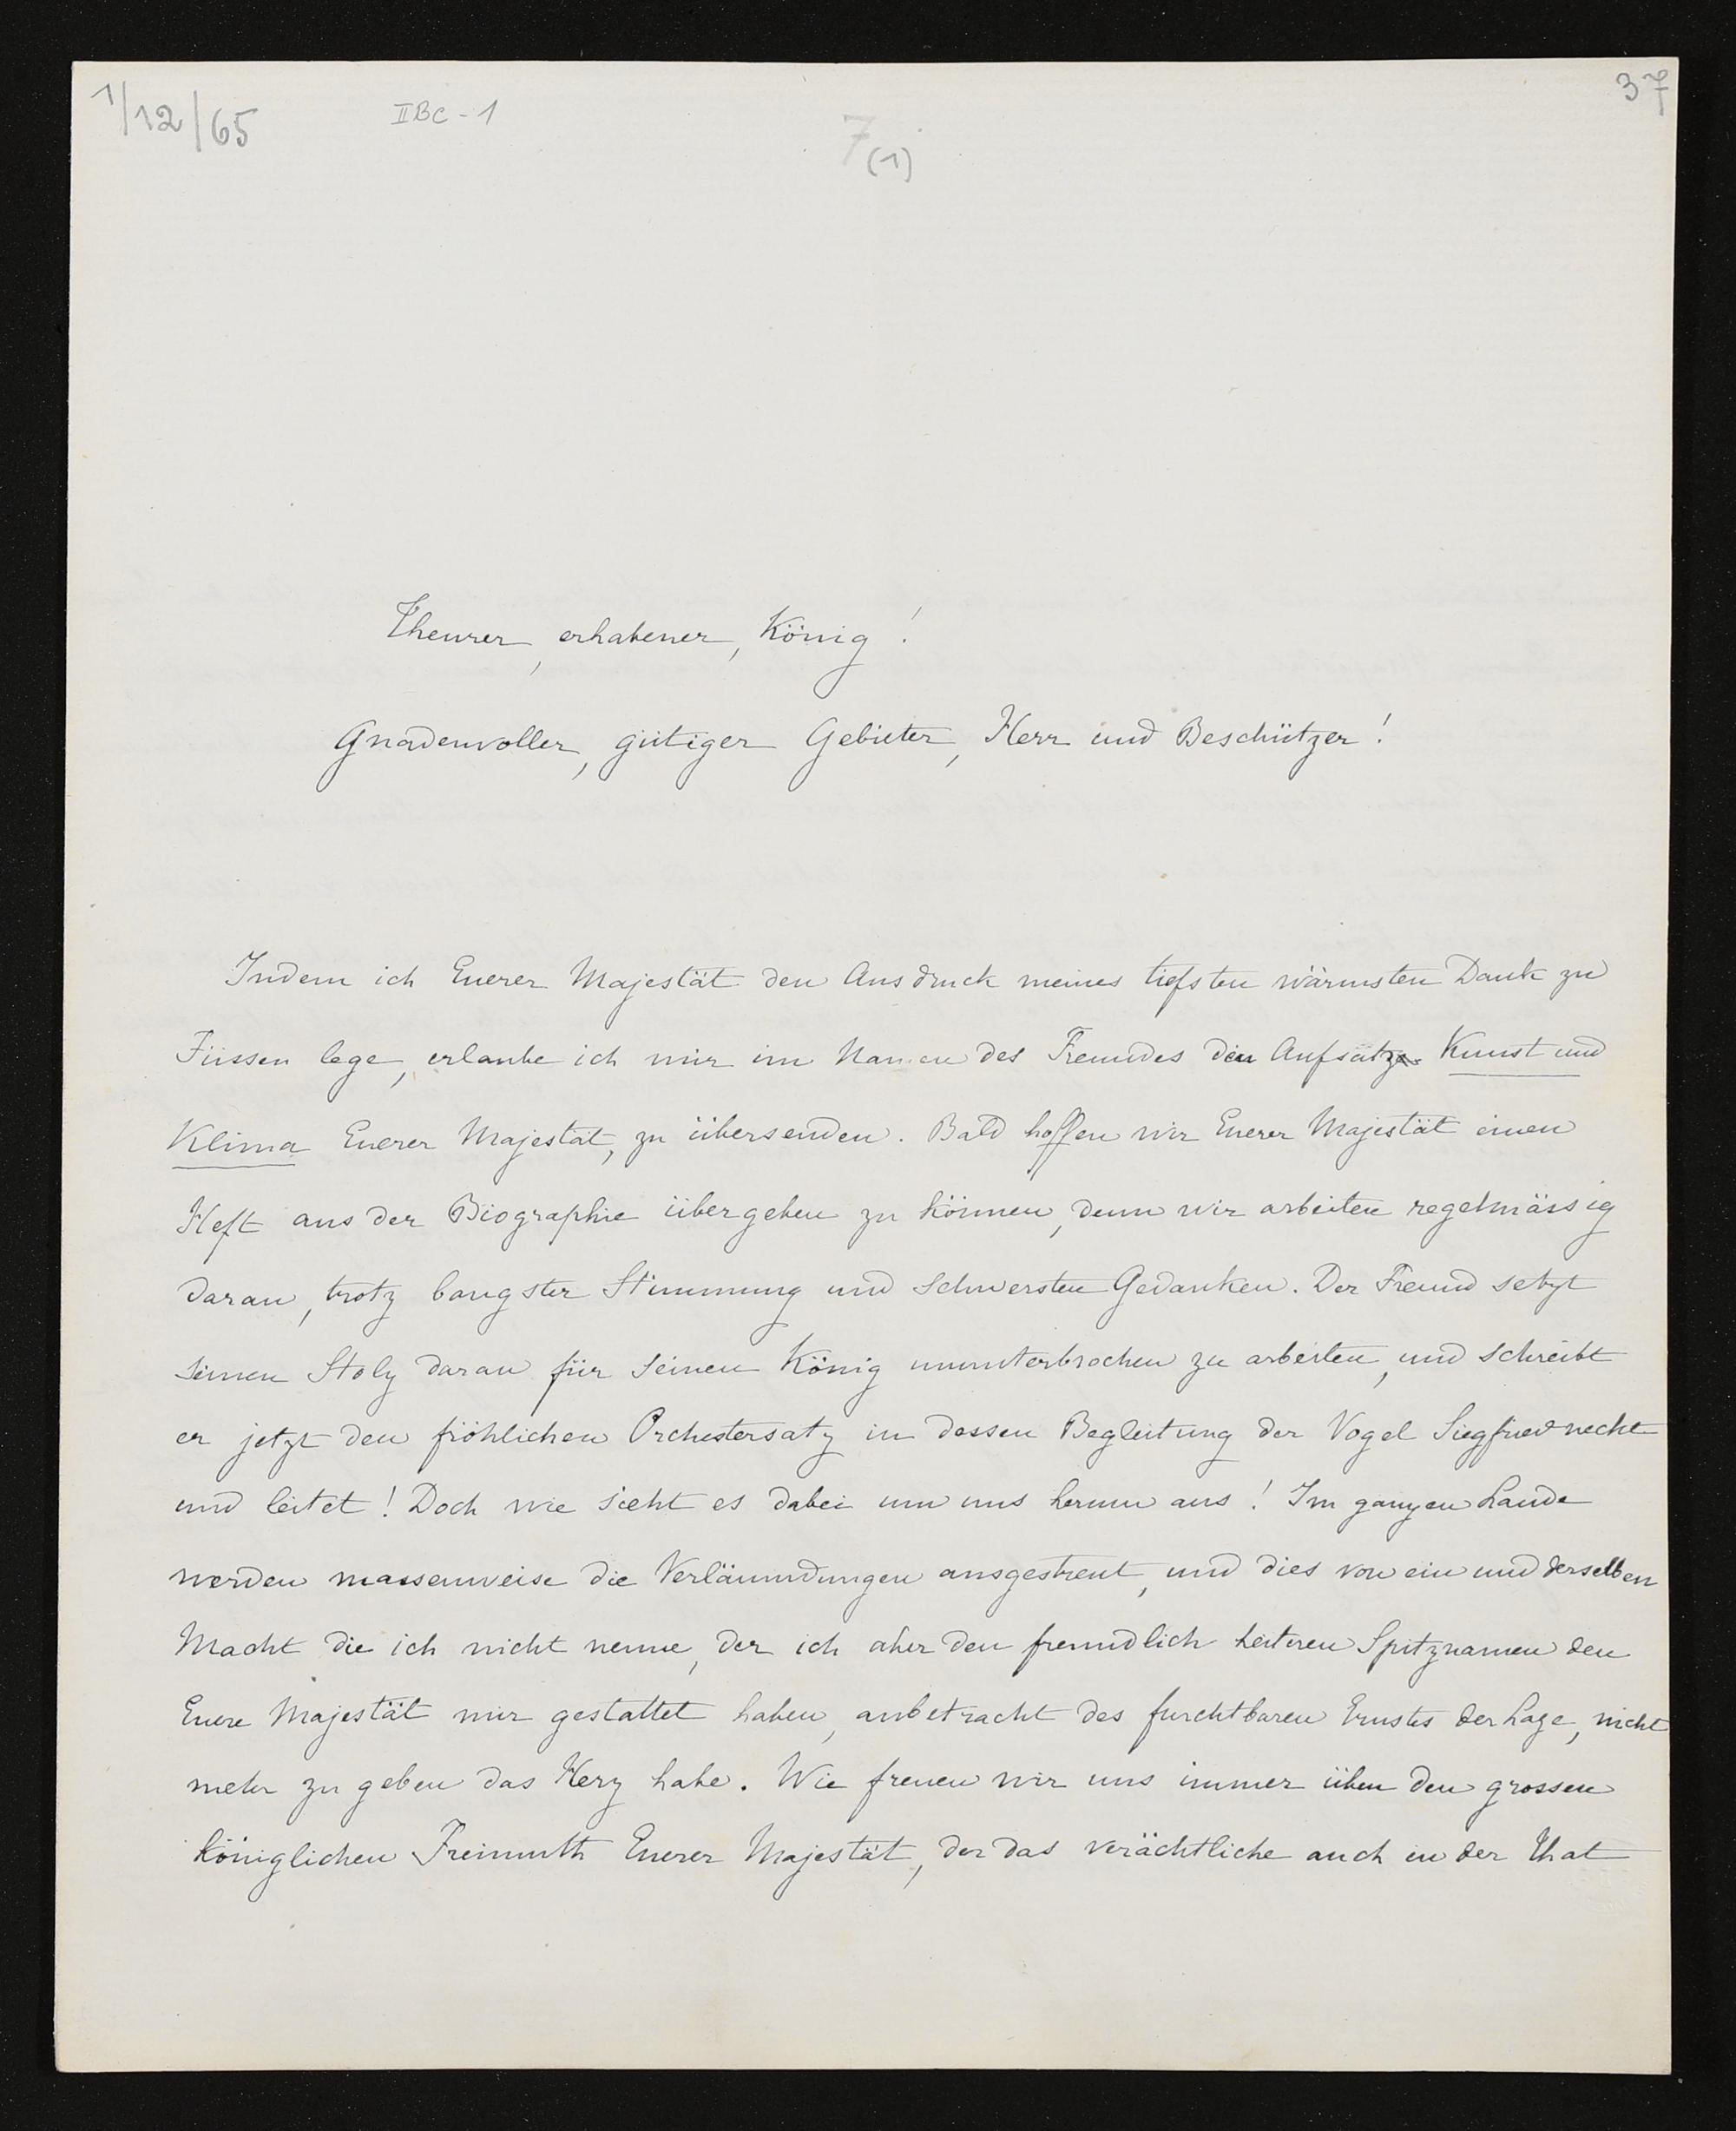 1/12/65
II BC - 1
7 (1)
37
Theurer, erhabener, König!
Gnadenvoller, gütiger Gebieter, Herr und Beschützer!
Indem ich Euerer Majestät den Ausdruck meines tiefsten wärmsten Dank zu
Füssen lege, erlaube ich mir im Namen des Freundes den Aufsatz Kunst und
Klima Euerer Majestät, zu übersenden. Bald hoffen wir Euerer Majestät einen
Heft aus der Biographie übergeben zu können, denn wir arbeiten regelmässig
daran, trotz bangster Stimmung und schwersten Gedanken. Der Freund setzt
seinen Stolz daran für seinen König ununterbrochen zu arbeiten, und schreibt
er jetzt den fröhlichen Orchestersatz in dessen Begleitung der Vogel Siegfried neckt
und leitet! Doch wie sieht es dabei um uns herum aus! Im ganzen Lande
werden massenweise die Verläumdungen ausgestreut, und dies von ein und derselben
Macht die ich nicht nenne, der ich aber den freundlich heiteren Spitznamen den
Euere Majestät mir gestattet haben, anbetracht des furchtbaren Ernstes der Lage, nicht
mehr zu geben das Herz habe. Wie freuen wir uns immer über den grossen
königlichen Freimuth Euerer Majestät, der das verächtliche auch in der That